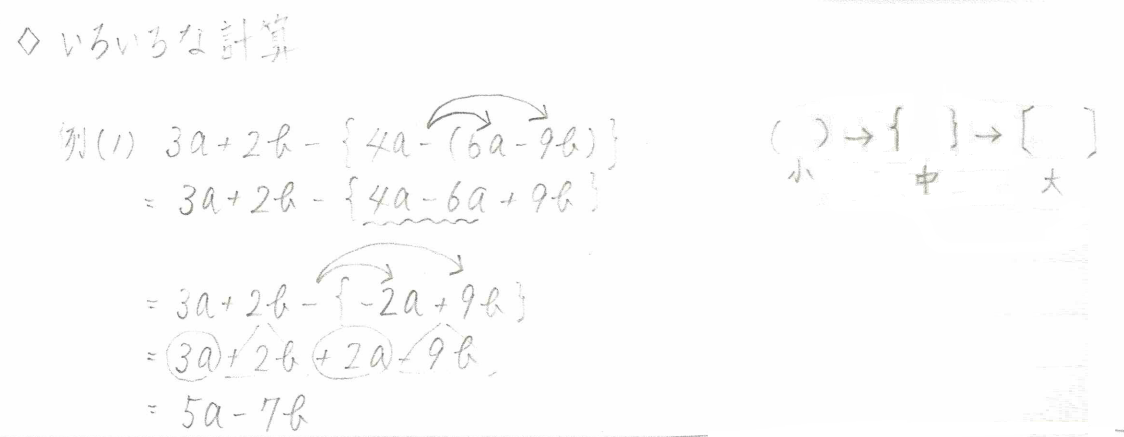 ◇ いろいろな計算
例(1) 3a+2b-{4a-(6a-9b)}
= 3a+2b-{4a-6a+9b}
= 3a+2b-{-2a+9b}
= 3a+2b+2a-9b
= 5a-7b
( )→{ }→[ ]
小 中 大